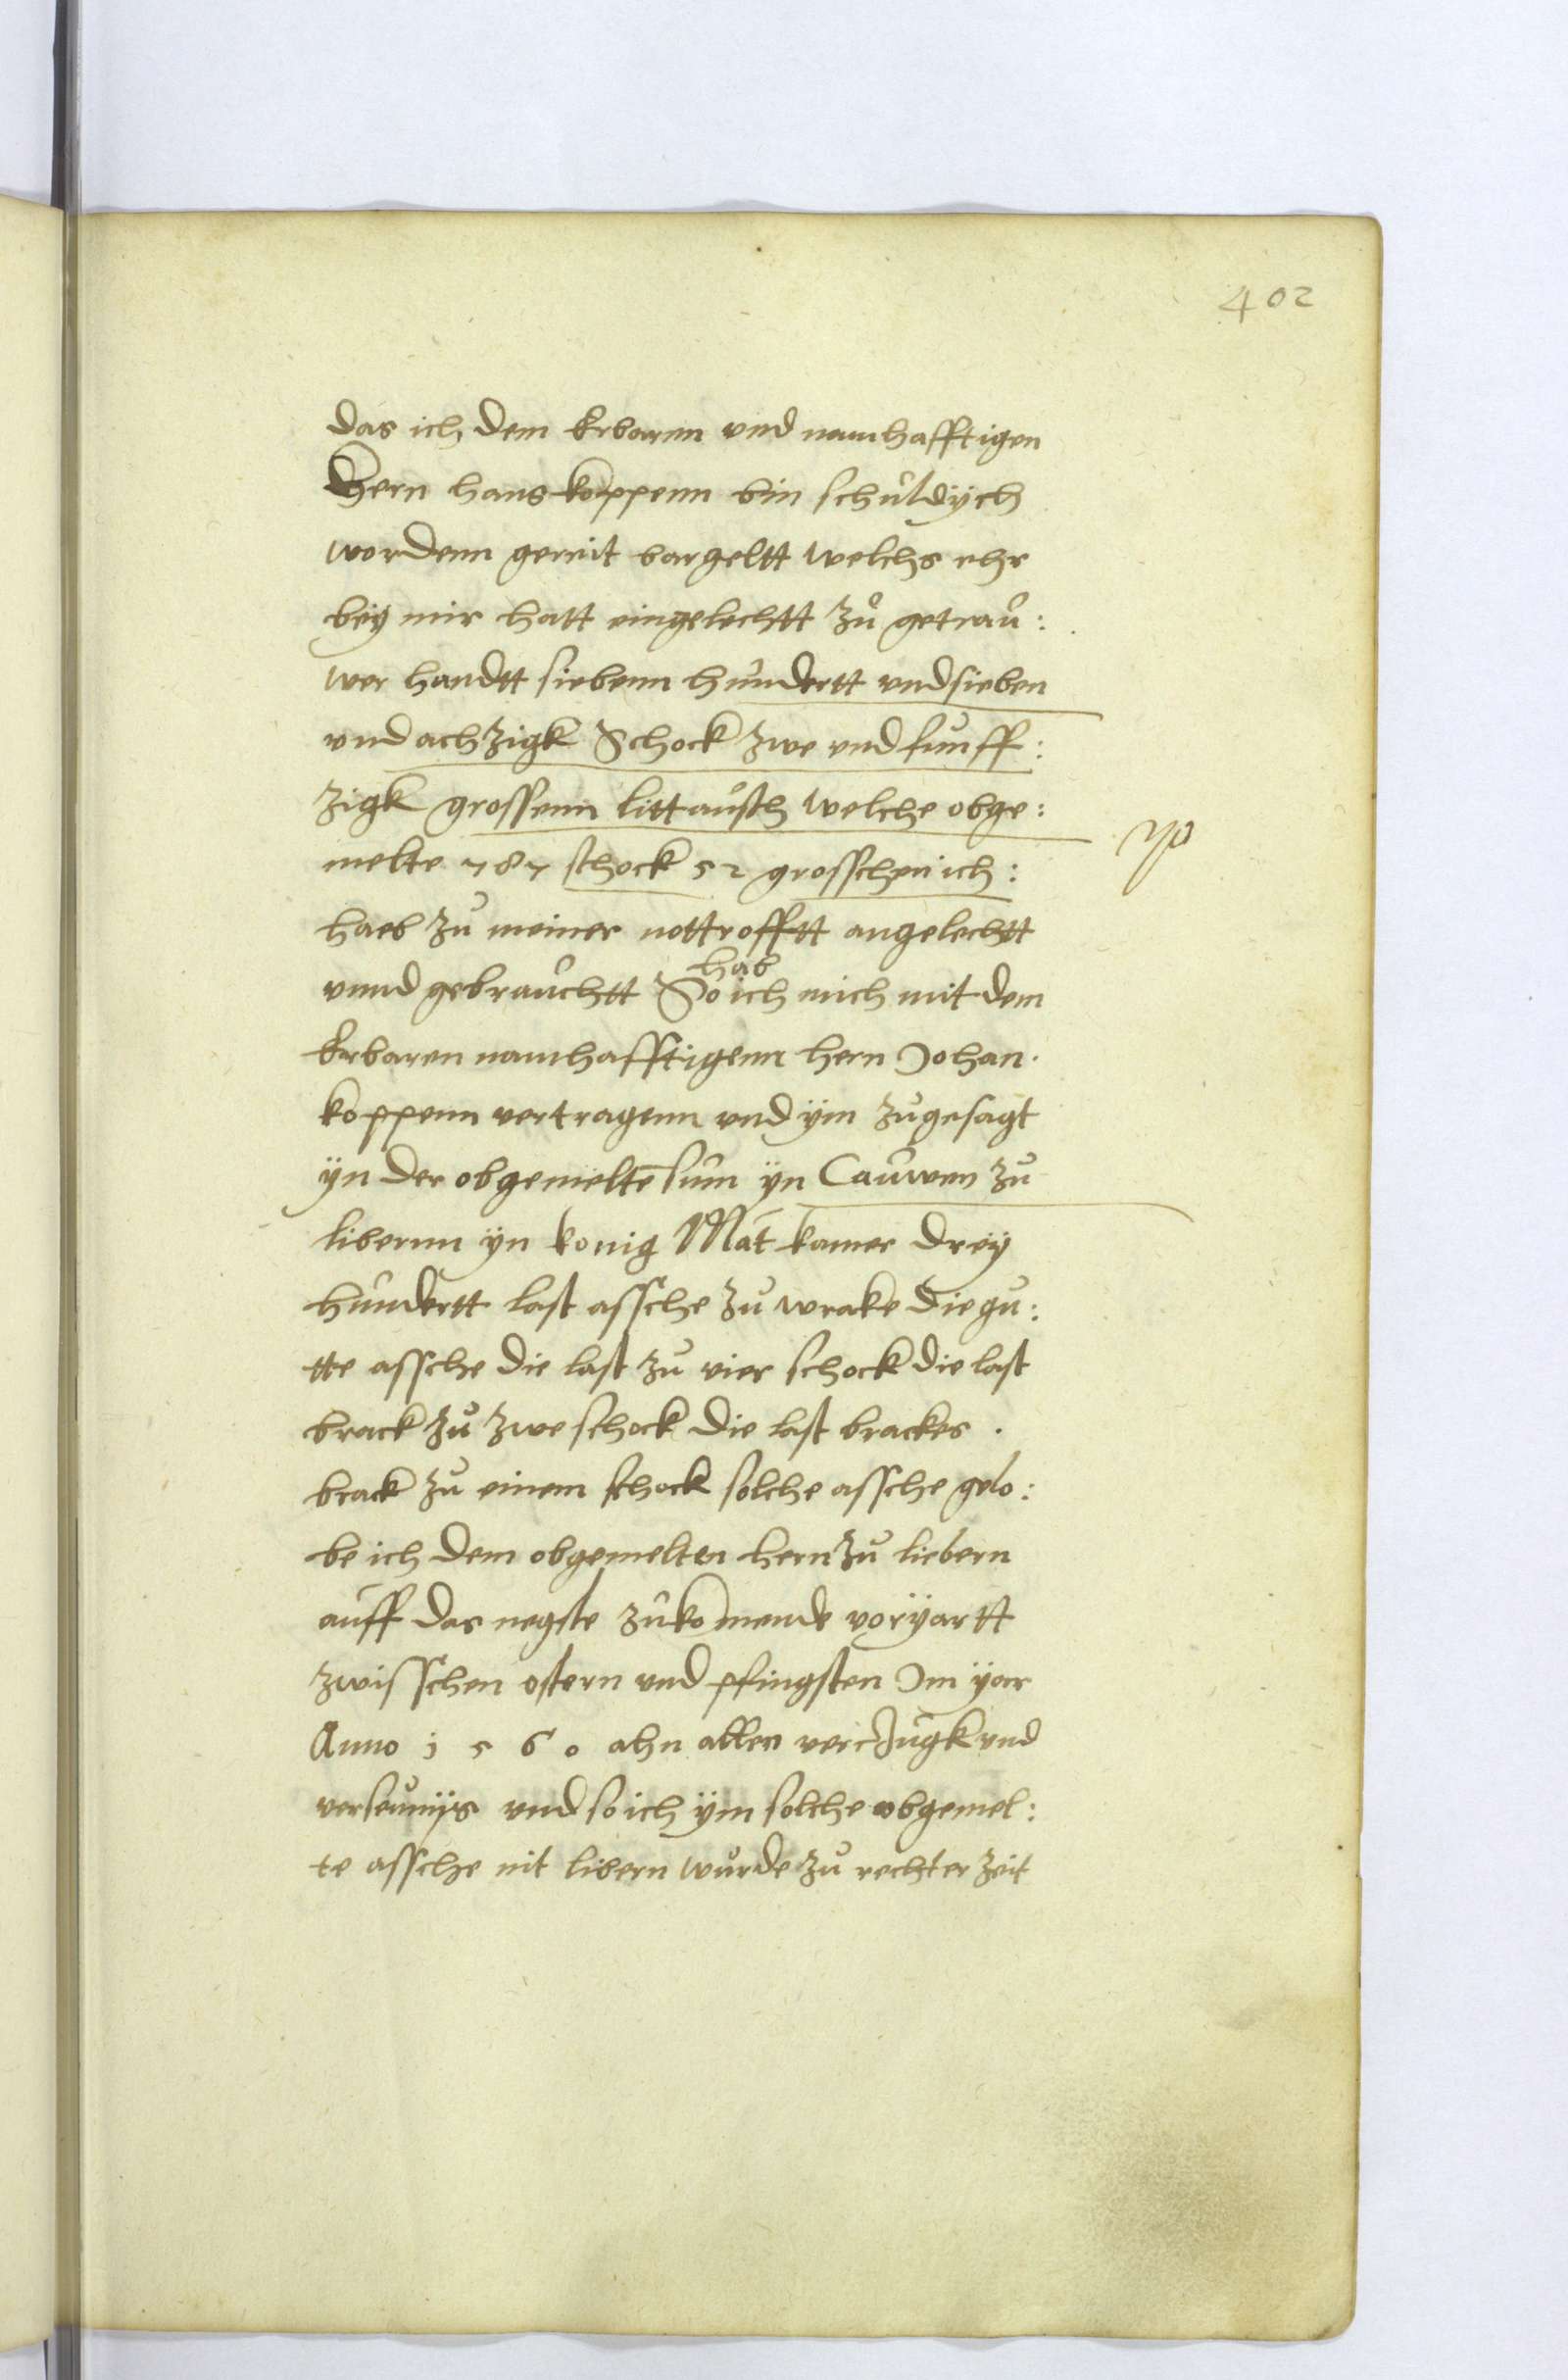 402
das ich dem Erbarnn vnd namhafftigen
Hern hans koppenn bin schuldÿch
wordenn gereit bargeltt welchs ehr
beÿ mir hatt eingelechtt zu getrau:
wer handtt siebenn hundertt vnd sieben
vnd achzigk Schock zwe vnd funff:
zigk grossenn littausch welche obge:
melte 787 schock 52 grosschen ich:
haeb zu meiner nottrofftt angelechtt
hab
vnnd gebrauchtt So ich mich mit dem
Erbaren namhafftigenn hern Johan
koppenn vertragenn vnd ÿm zugesagt
ÿn der obgemelte sum ÿn Cauwen zu
libernn ÿn konig Mat kamer dreÿ
hundertt last assche zu wrake die gu:
tte assche die last zu vier schock die last
brack zu zwe schock die last brackes
brack zu einem schock solche assche gelo:
be ich dem obgemelten hern zu liebern
auff das negste zukomende vorÿartt
zwisschen ostern vnd pfingsten Im ÿar
Anno 1560 ahn allen verczugk vnd
verseumÿs vnd so ich ÿm solche obgemel:
te assche nit libern wurde zu rechter zeit